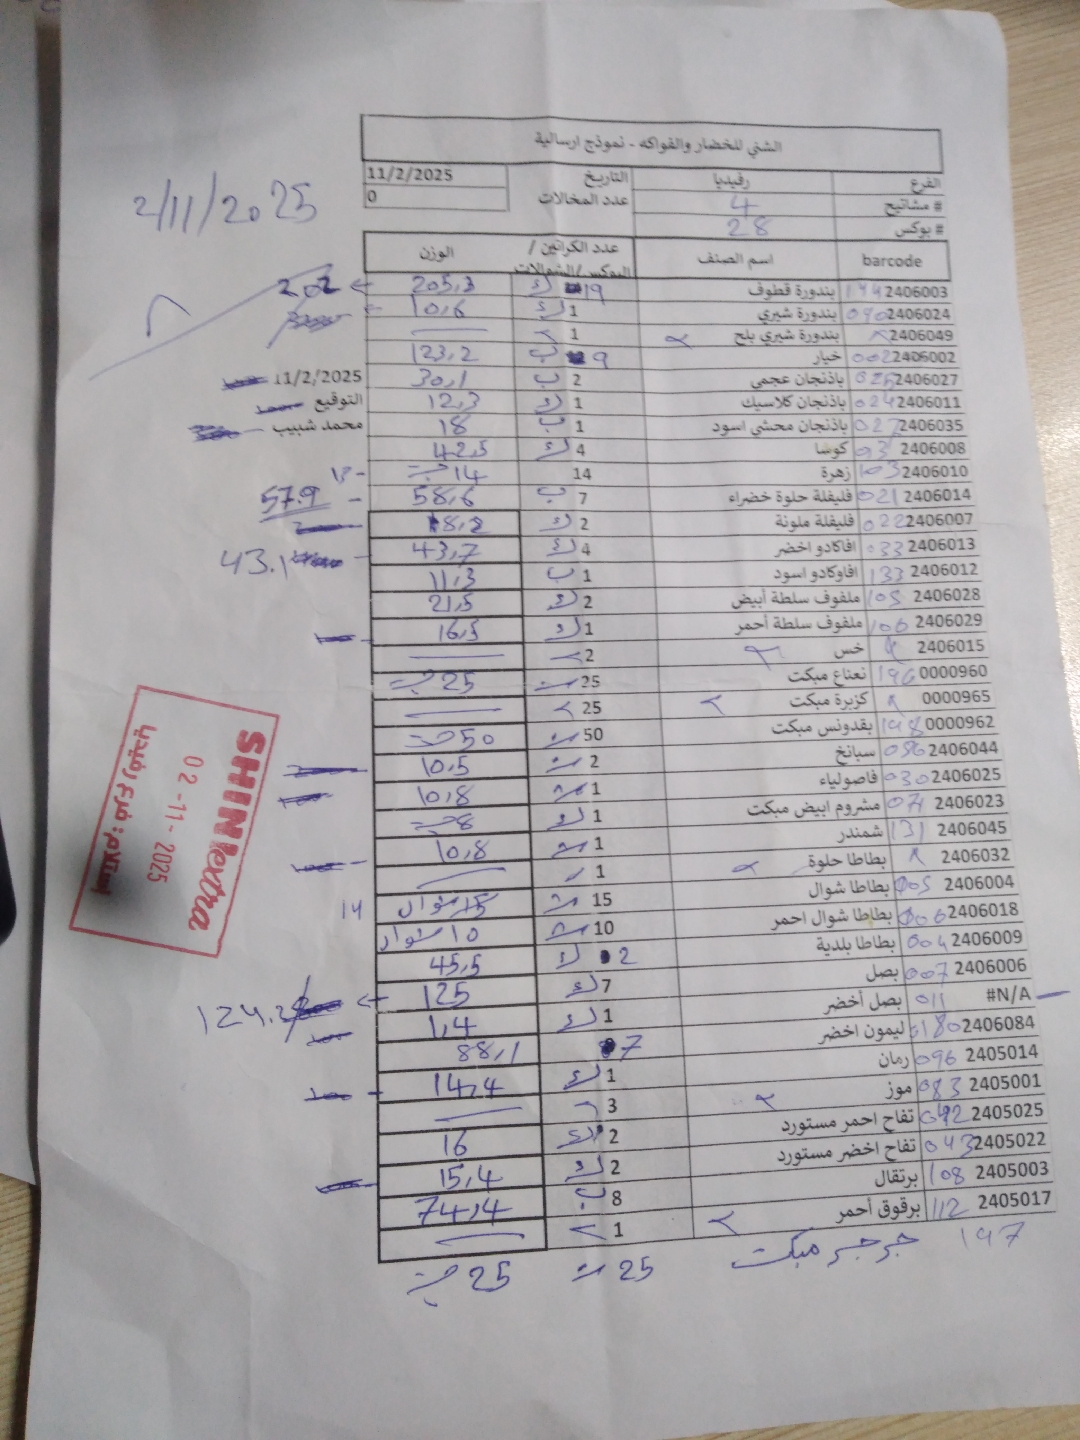 الشني للخضار والفواكه - نموذج ارسالية
الفرع رفيديا التاريخ 11/2/2025
# مشاتيح 4 عدد المخالات 0
# بوكس 28
2/11/2025
barcode اسم الصنف عدد الكراتين / البوكس/الشوالات الوزن
2406003 بندورة قطوف 19 ك 205,3 202
2406024 090 بندورة شيري 1 ك 10,6
2406049 بندورة شيري بلح 1
2406002 002 خيار 9 ب 123,2
2406027 025 باذنجان عجمي 2 ب 30,1 11/2/2025
2406011 024 باذنجان كلاسيك 1 ك 12,3 التوقيع
2406035 027 باذنجان محشي اسود 1 ب 18 محمد شبيب
2406008 93 كوسا 4 ك 42,5
2406010 103 زهرة 14 14 حبة
2406014 021 فليفلة حلوة خضراء 7 ب 58,6 57.9
2406007 022 فليفلة ملونة 2 ك 8,2
2406013 033 افاكادو اخضر 4 ك 43,7 43.1
2406012 133 افاوكادو اسود 1 ب 11,3
2406028 105 ملفوف سلطة أبيض 2 ك 21,5
2406029 106 ملفوف سلطة أحمر 1 ك 16,5
2406015 خس 2
0000960 196 نعناع مبكت 25 25 حبة
0000965 كزبرة مبكت 25
0000962 198 بقدونس مبكت 50 50 حبة
2406044 056 سبانخ 2 10.5
2406025 030 فاصولياء 1 10,8
2406023 074 مشروم ابيض مبكت 1 ك 8 حبة
2406045 131 شمندر 1 10,8
2406032 بطاطا حلوة 1
2406004 005 بطاطا شوال 15 15 شوال 14
2406018 006 بطاطا شوال احمر 10 10 شوال
2406009 004 بطاطا بلدية 2 ك 45,5
2406006 007 بصل 7 ك 125
#N/A 011 بصل أخضر 1 ك 1,4
2406084 180 ليمون اخضر 7 88,1
2405014 096 رمان 1 ك 14,4
2405001 083 موز 3
2405025 042 تفاح احمر مستورد 2 ك 16
2405022 043 تفاح اخضر مستورد 2 ك 15,4
2405003 108 برتقال 8 ب 74,4
2405017 112 برقوق أحمر 1
197 جرجير مبكت 25 25 حبة
SHINI extra
02-11-2025
فرع رفيديا